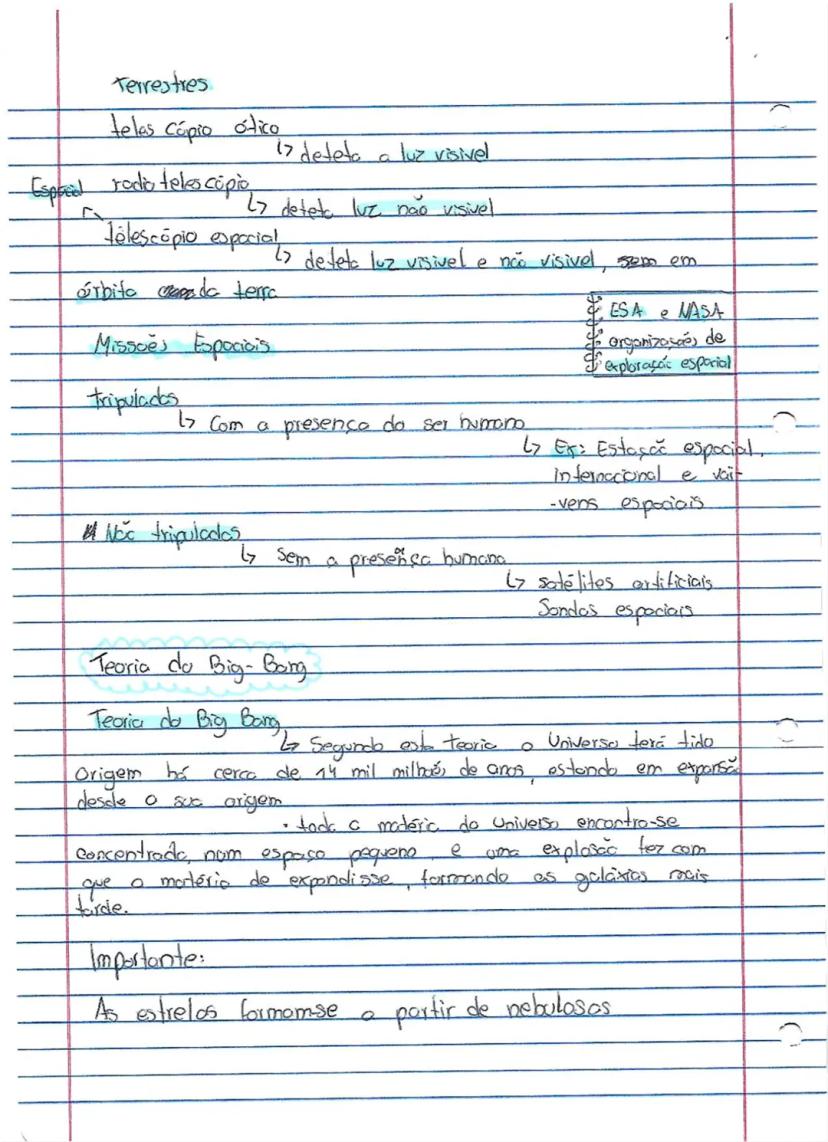 Terrestres
telescópio ótico
↳ deteta a luz visivel
Espacial radiotelescópio
↳ deteta luz não visivel
telescópio espacial
↳ deteta luz visivel e não visivel, em
órbita da terra
ESA e NASA
organizações de
exploração espacial
Missões Espaciais
tripulados
↳ Com a presença do ser humano
↳ Ex: Estação espacial
internacional e vai-
-vens espaciais
Não tripulados
↳ Sem a presença humana
↳ satélites artificiais
Sondas espaciais
Teoria do Big-Bang
Teoria do Big Bang
↳ Segundo esta teoria o Universo terá tido
origem há cerca de 14 mil milhões de anos, estando em expansão
desde a sua origem
• toda a matéria do Universo encontra-se
concentrada, num espaço pequeno, e uma explosão fez com
que a matéria de expandisse, formando as galáxias mais
tarde.
Importante:
As estrelas formam-se a partir de nebulosas